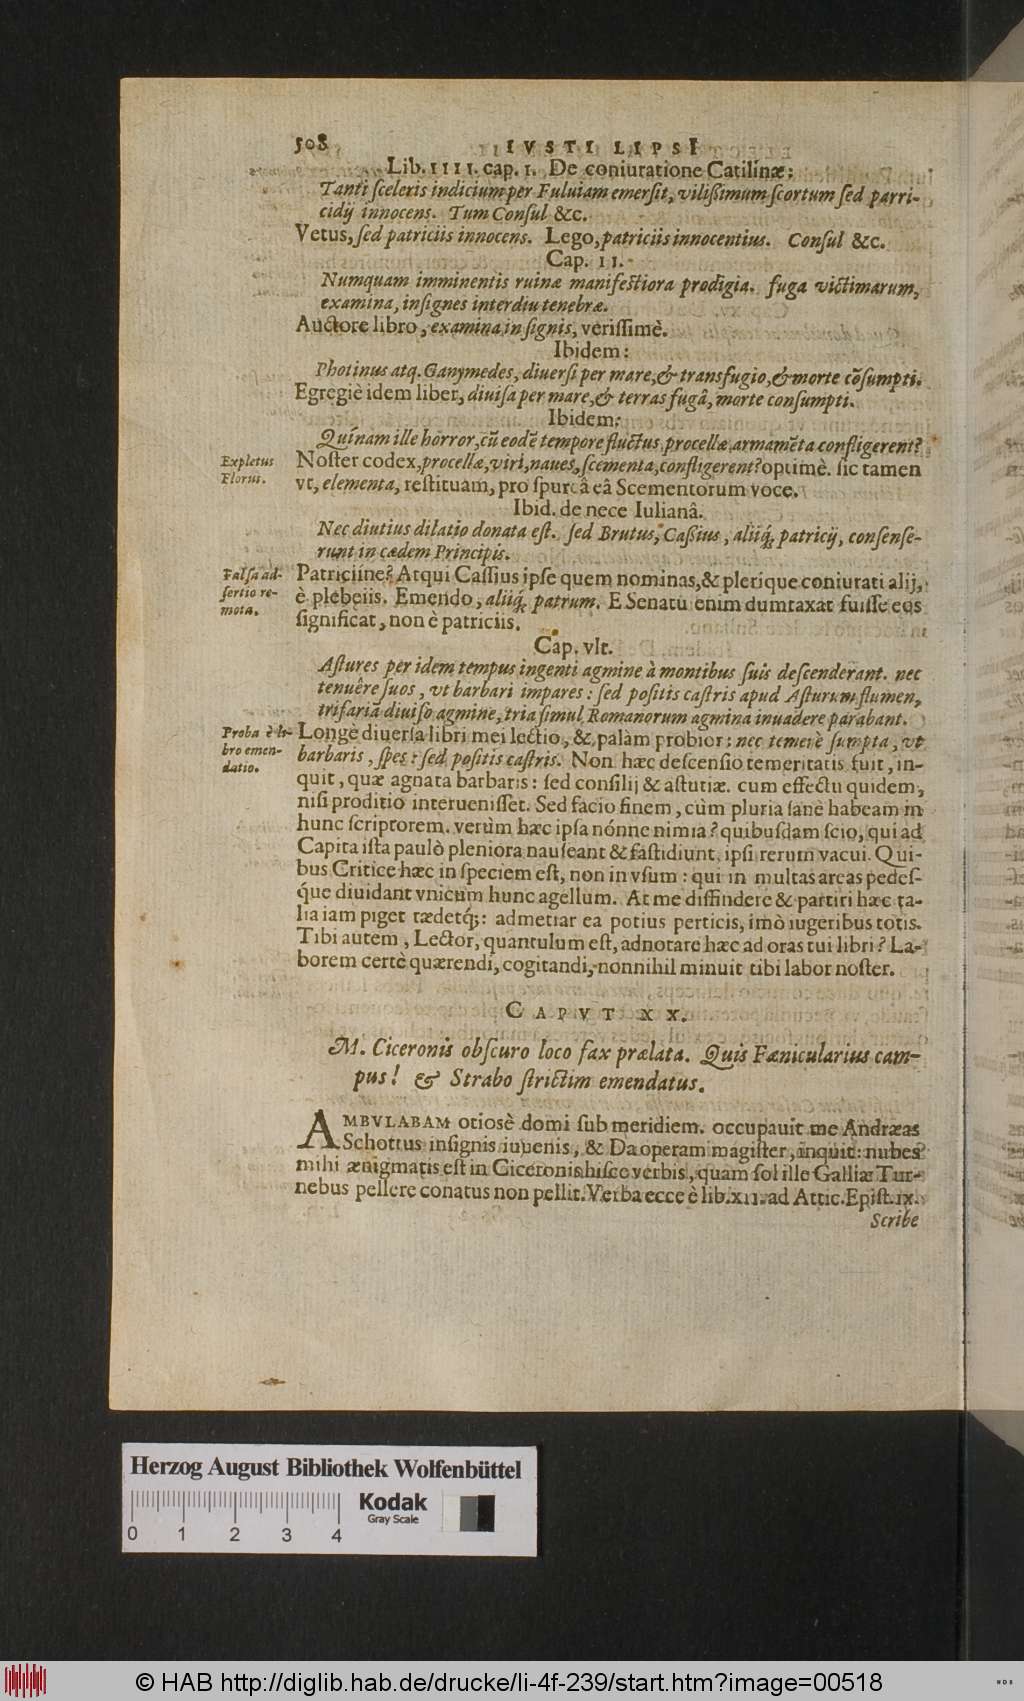 508 IVSTI LIPSI
Lib. IIII. cap. I. De coniuratione Catilinæ:
Tanti ſceleris indicium per Fuluiam emerſit, viliſſimum ſcortum ſed parri-
cidij innocens. Tum Conſul &c.
Vetus, ſed patriciis innocens. Lego, patriciis innocentius. Conſul &c.
Cap. II.
Numquam imminentis ruinæ manifeſtiora prodigia. fuga victimarum,
examina, inſignes interdiu tenebræ.
Auctore libro, examina inſignis, veriſſimè.
Ibidem:
Photinus atq. Ganymedes, diuerſi per mare, & transfugio, & morte cōſumpti.
Egregiè idem liber, diuiſa per mare, & terras fugâ, morte conſumpti.
Ibidem:
Quínam ille horror, cū eodē tempore fluctus procellæ armamēta confligerent?
Expletus
Florus.
Noſter codex, procellæ, viri, naues, ſcementa, confligerent? optimè. ſic tamen
vt, elementa, reſtituam, pro ſpurcâ eâ Scementorum voce.
Ibid. de nece Iulianâ.
Nec diutius dilatio donata eſt. ſed Brutus, Caſſius, aliiq́; patricij, conſenſe-
runt in cædem Principis.
Falſa ad-
ſertio re-
mota.
Patriciine? Atqui Caſſius ipſe quem nominas, & plerique coniurati alij,
è plebeiis. Emendo, aliiq́; patrum. E Senatu enim dumtaxat fuiſſe eos
ſignificat, non è patriciis.
Cap. vlt.
Aſtures per idem tempus ingenti agmine à montibus ſuis deſcenderant. nec
tenuêre ſuos, vt barbari impares: ſed poſitis caſtris apud Aſturum flumen,
trifariā diuiſo agmine, tria ſimul Romanorum agmina inuadere parabant.
Proba è li-
bro emen-
datio.
Longè diuerſa libri mei lectio, & palàm probior: nec temerè ſumpta, vt
barbaris, ſpes: ſed poſitis caſtris. Non hæc deſcenſio temeritatis fuit, in-
quit, quæ agnata barbaris: ſed conſilij & aſtutiæ. cum effectu quidem,
niſi proditio interueniſſet. Sed facio finem, cùm pluria ſanè habeam in
hunc ſcriptorem. verùm hæc ipſa nónne nimia? quibuſdam ſcio, qui ad
Capita iſta paulò pleniora nauſeant & faſtidiunt, ipſi rerum vacui. Qui-
bus Critice hæc in ſpeciem eſt, non in vſum: qui in multas areas pedeſ-
q́ue diuidant vnicum hunc agellum. At me diffindere & partiri hæc ta-
lia iam piget tædetq́;: admetiar ea potius perticis, imò iugeribus totis.
Tibi autem, Lector, quantulum eſt, adnotare hæc ad oras tui libri? La-
borem certè quærendi, cogitandi, nonnihil minuit tibi labor noſter.
CAPVT XX.
M. Ciceronis obſcuro loco fax prælata. Quis Fænicularius cam-
pus! & Strabo ſtrictim emendatus.
AMBVLABAM otiosè domi ſub meridiem. occupauit me Andræas
Schottus inſignis iuuenis, & Da operam magiſter, inquit: nubes
mihi ænigmatis eſt in Ciceronis hiſce verbis, quam ſol ille Galliæ Tur-
nebus pellere conatus non pellit. Verba ecce è lib. XII. ad Attic. Epiſt. IX.
Scribe
Herzog August Bibliothek Wolfenbüttel
Kodak
Gray Scale
0 1 2 3 4
© HAB http://diglib.hab.de/drucke/li-4f-239/start.htm?image=00518